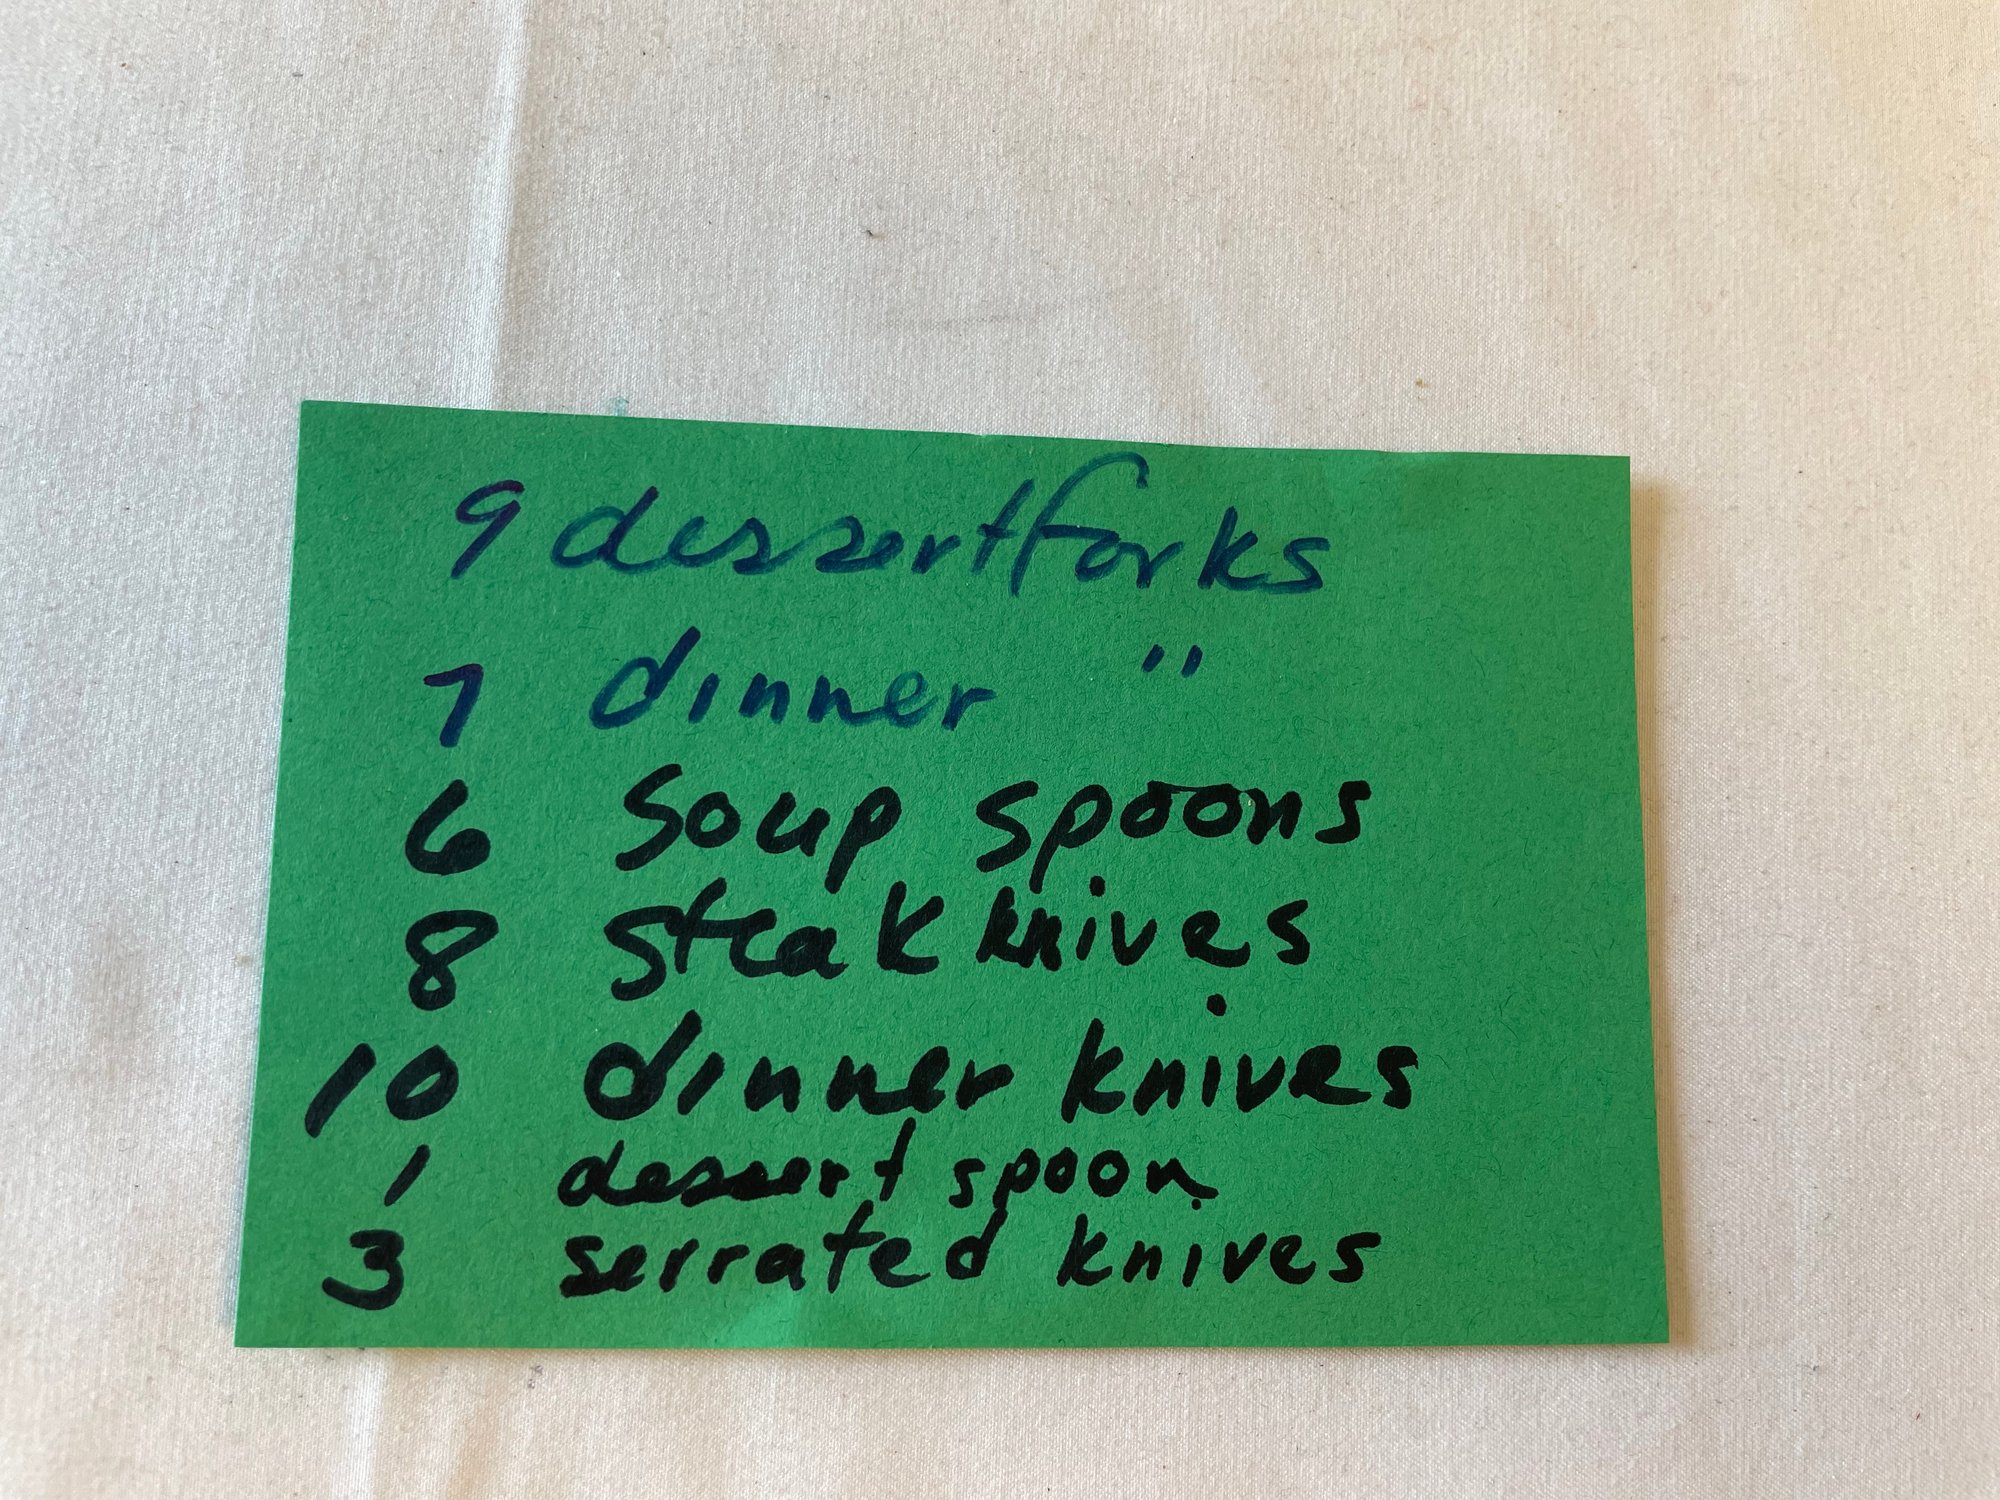 9 dessert forks
7 dinner "
6 soup spoons
8 steak knives
10 dinner knives
1 dessert spoon
3 serrated knives